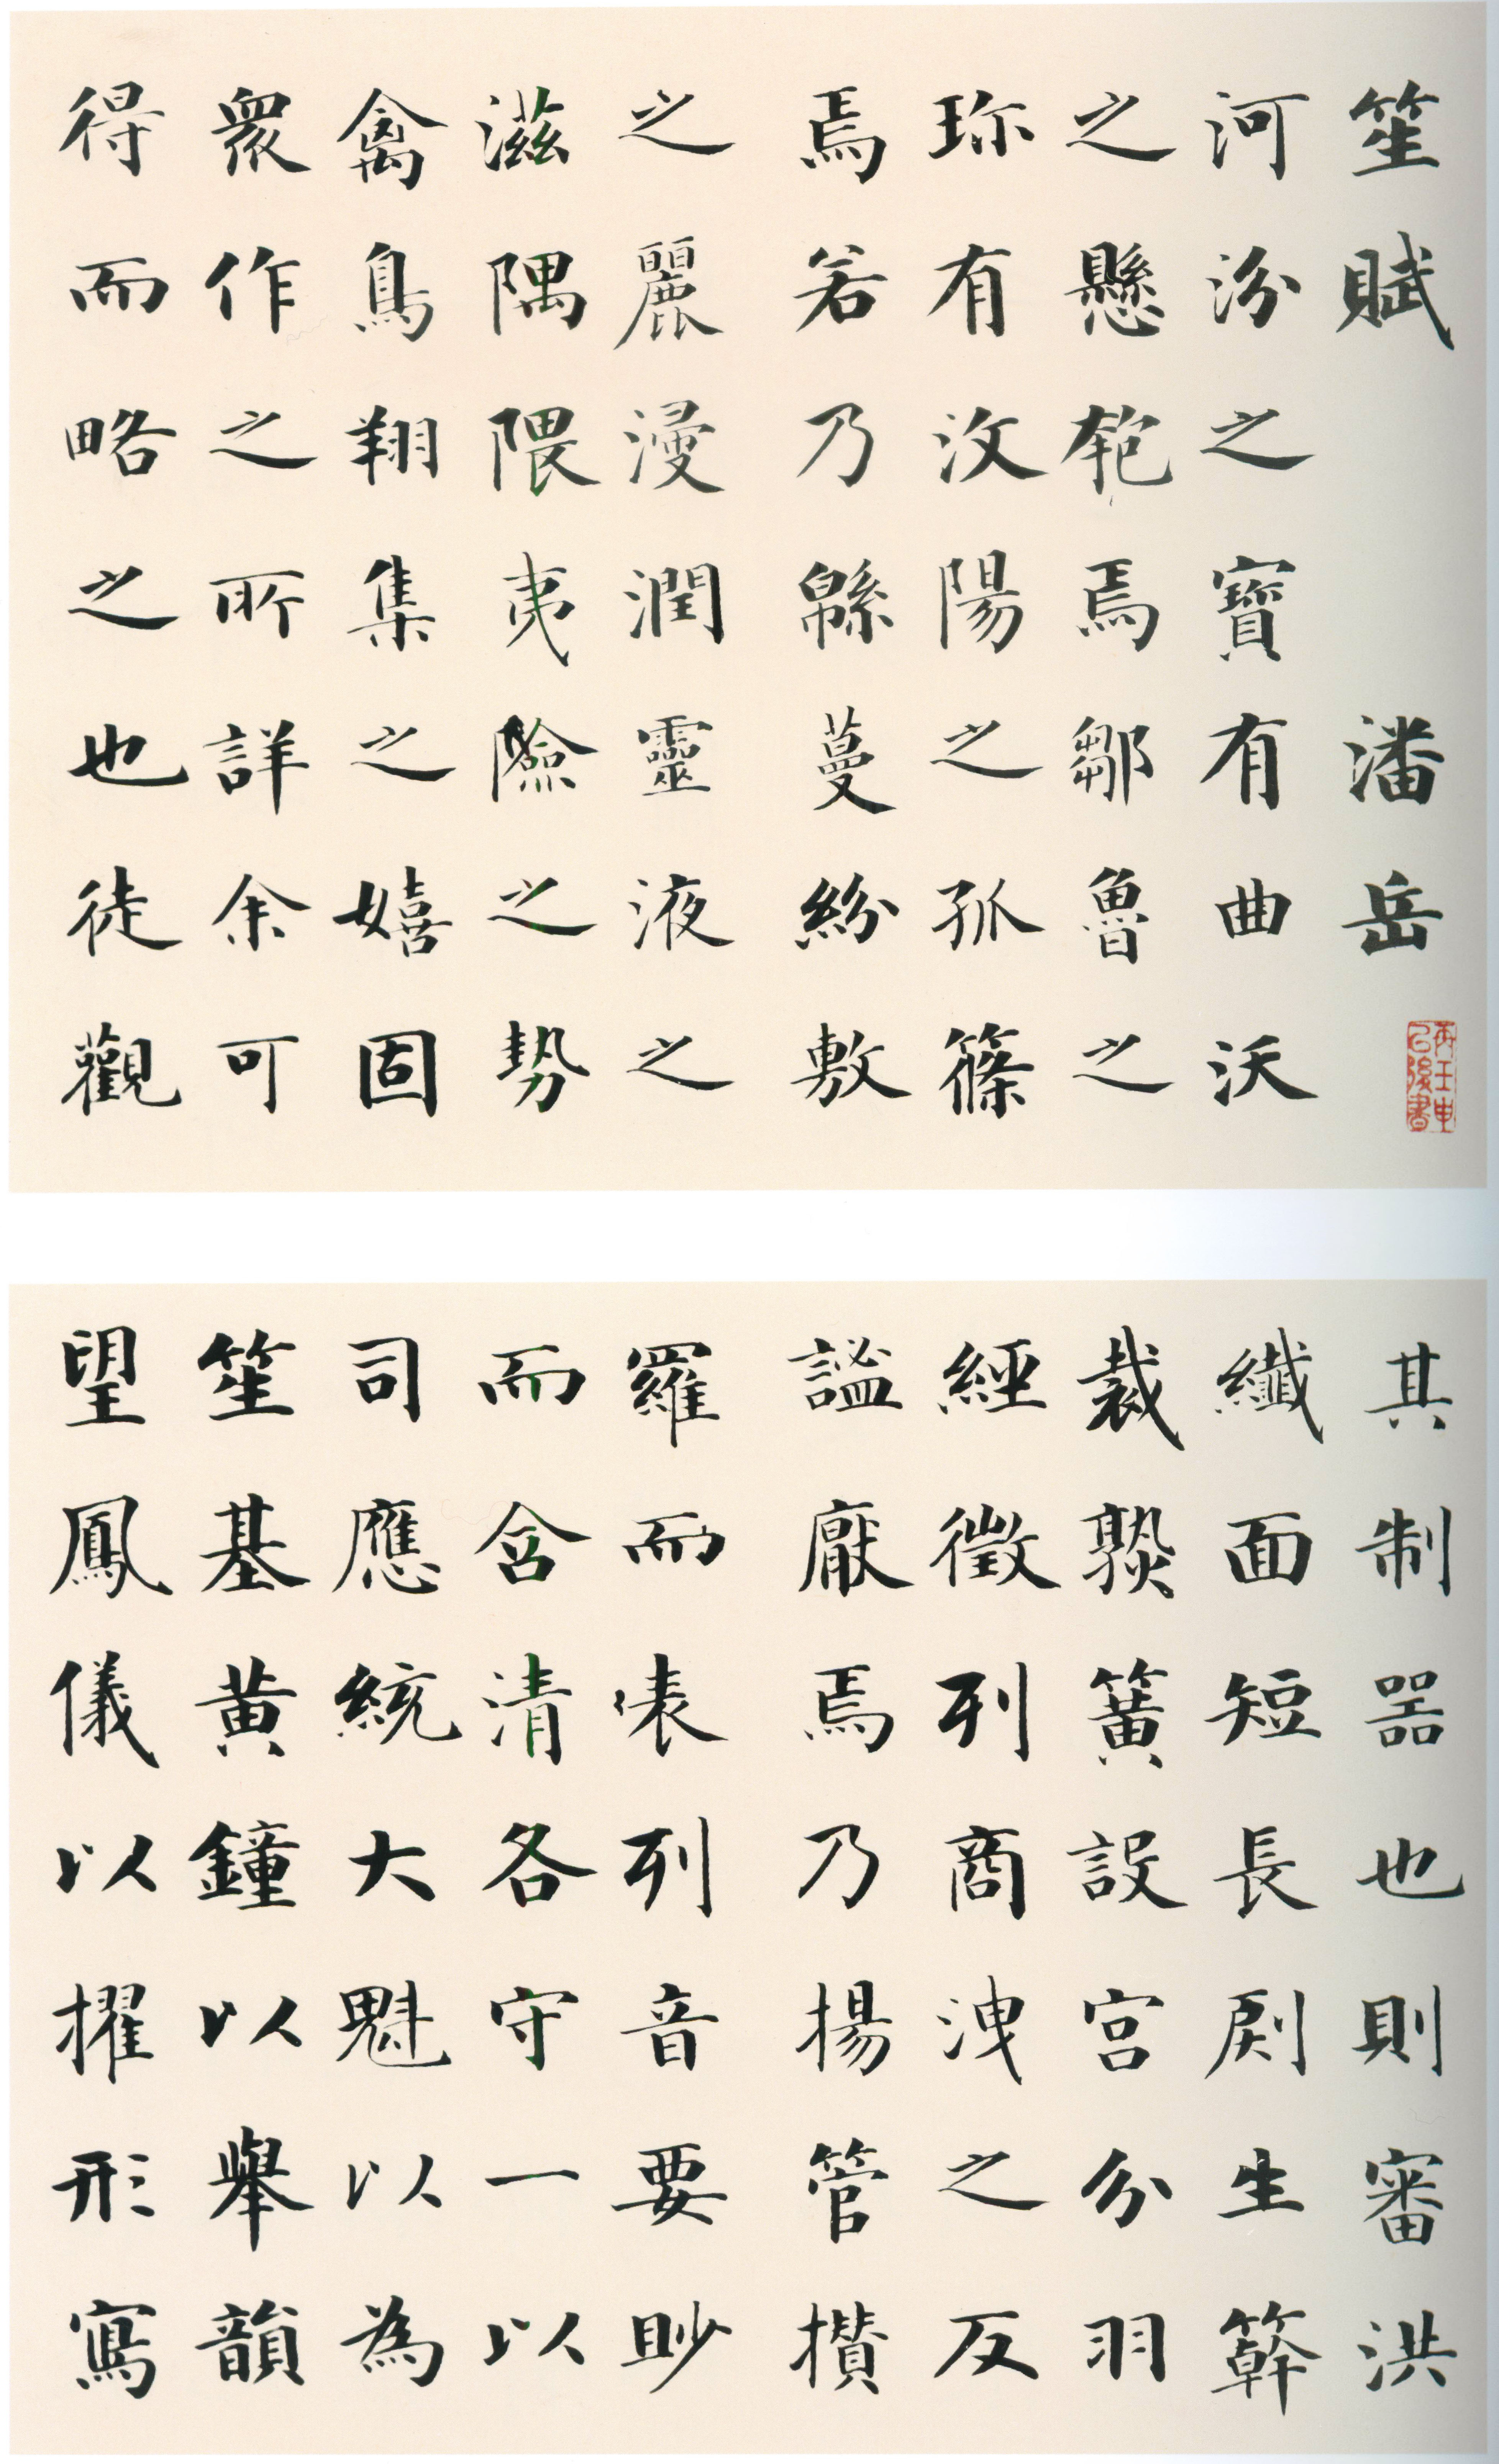 笙賦 潘岳
河汾之寶有曲沃
之懸匏焉鄒魯之
珎有汶陽之孤篠
焉若乃緜蔓紛敷
之麗浸潤靈液之
滋隅隈夷險之勢
禽鳥翔集之嬉固
衆作之所詳余可
得而略之也徒觀
其制器也則審洪
纖面短長㓼生簳
裁熟簧設宮分羽
經徵列商洩之反
謐厭焉乃揚管攢
羅而俵列音要眇
而含清各守一以
司應統大魁以為
笙基黃鐘以舉韻
望鳳儀以擢形寫